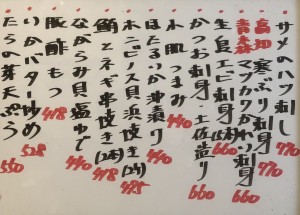 サメのハツ刺し 770
高知 寒ぶり刺身 770
青森 マツカワかれい刺身 660
生烏エビ刺身(5本) 660
かつお刺身 土佐造り 660
氷肌つまみ 440
ほたるいか沖漬り 440
ホンビノス貝浜焼き(2ケ) 495
鮪とネギ串焼き(2本) 498
ながらみ貝塩ゆで 440
豚酢もつ 418
いかバター炒め 528
たらの芽天ぷら 550